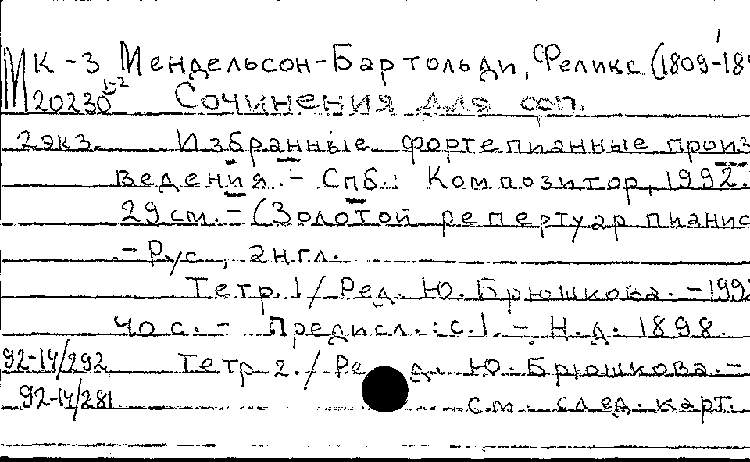 МК-3 Мендельсон-Бартольди, Феликс (1809-184
20230 Сочинения для фп.
2экз. Избранные фортепианные произ
ведения. - Спб.: Композитор, 1992.
29см. - (Золотой репертуар пианис
- Рус., англ.
Тетр.1/ Ред. Ю. Брюшкова. - 1992
40 с. - Предисл.: с.1. - Н.д. 1898.
92-14/292 Тетр 2. / Ред. Ю. Брюшкова. -
92-14/281 см. след. карт.